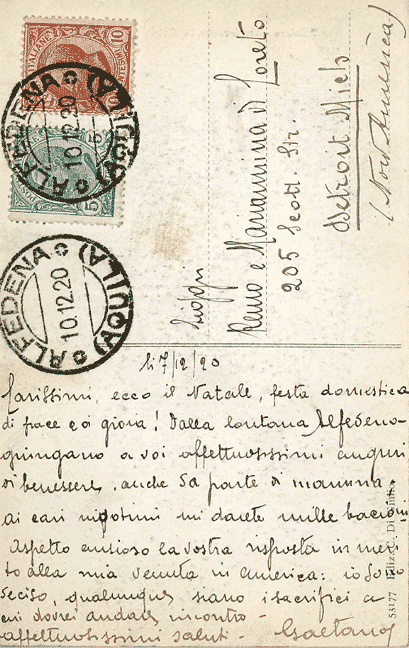 10
5
ALFEDENA (AQUILA)
10.12.20
ALFEDENA (AQUILA)
10.12.20
Remo e Mariannina Di Loreto
205 Scott. Str.
Detroit Mich
(Nord America)
li 7/12/20
Carissimi, ecco il Natale, festa domestica
di pace e di gioia! Dalla lontana Alfedena
giungano a voi affettuosissimi auguri
di benessere, anche da parte di mamma,
ai cari nipotini mi darete mille bacioni
Aspetto ansioso la vostra risposta in meri-
to alla mia venuta in america: io sono
deciso, qualunque siano i sacrifici a
cui dovrei andare incontro -
affettuosissimi saluti - Gaetano
53177